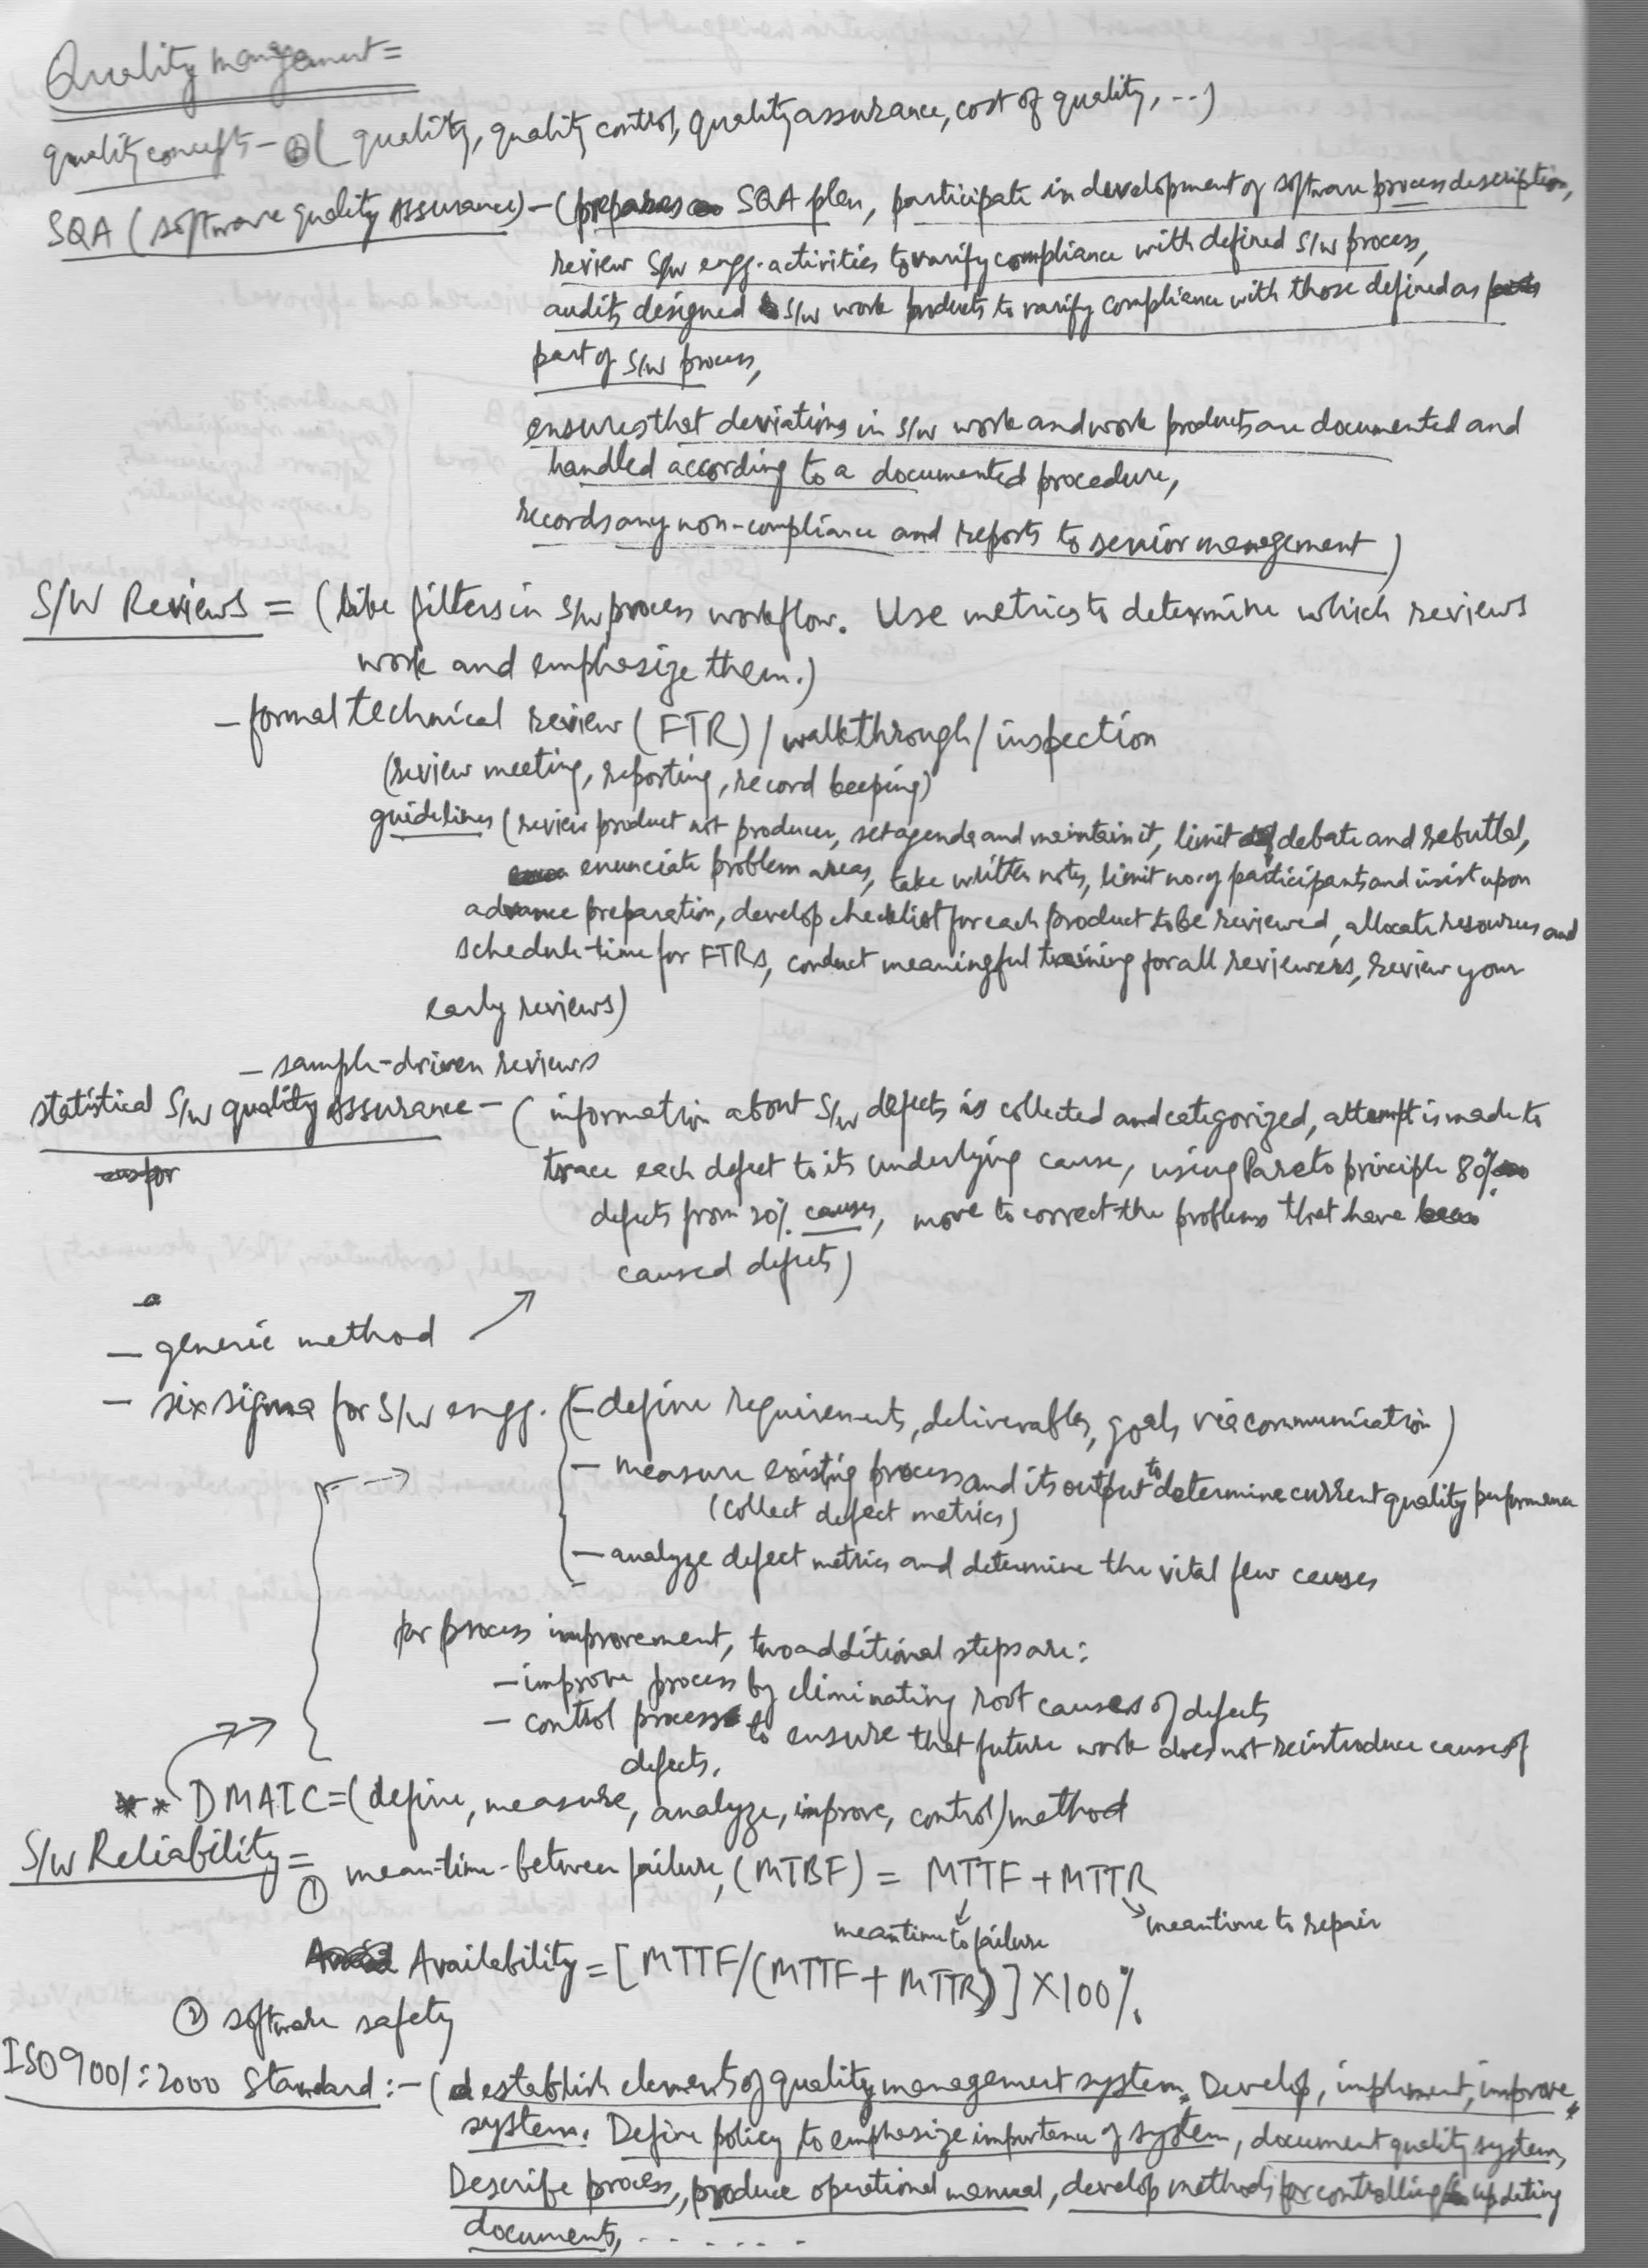 Quality management =
quality concepts - ( quality, quality control, quality assurance, cost of quality, ...)
SQA (software quality assurance) - (prepares SQA plan, participate in development of software process description,
review S/W engg. activities to varify compliance with defined S/W process,
audits designed S/W work products to varify compliance with those defined as
part of S/W process,
ensures that deviations in S/W work and work products are documented and
handled according to a documented procedure,
records any non-compliance and reports to senior management)
S/W Reviews = (like filters in S/W process workflow. Use metrics to determine which reviews
work and emphasize them.)
- formal technical review (FTR) / walkthrough / inspection
(review meeting, reporting, record keeping)
guidelines (review product not producer, set agenda and maintain it, limit debate and rebuttal,
enunciate problem areas, take written notes, limit no. of participants and insist upon
advance preparation, develop checklist for each product to be reviewed, allocate resources and
schedule time for FTRs, conduct meaningful training for all reviewers, review your
early reviews)
- sample-driven reviews
statistical S/W quality assurance - ( information about S/W defects is collected and categorized, attempt is made to
trace each defect to its underlying cause, using Pareto principle 80%
defects from 20% causes, move to correct the problems that have
caused defects)
- generic method
- six sigma for S/W engg. (- define requirements, deliverables, goals via communication)
- measure existing process and its output to determine current quality performance
(collect defect metrics)
- analyze defect metrics and determine the vital few causes
for process improvement, two additional steps are:
- improve process by eliminating root causes of defects
- control process to ensure that future work does not reintroduce causes of
defects.
** DMAIC = (define, measure, analyze, improve, control) method
S/W Reliability =
① mean-time-between failure, (MTBF) = MTTF + MTTR
mean time to failure mean time to repair
Availability = [MTTF/(MTTF + MTTR)] X 100%.
② software safety
ISO 9001:2000 Standard :- ( establish elements of quality management system. Develop, implement, improve
system. Define policy to emphasize importance of system, document quality system,
Describe process, produce operational manual, develop methods for controlling updating
documents, . . . . . .